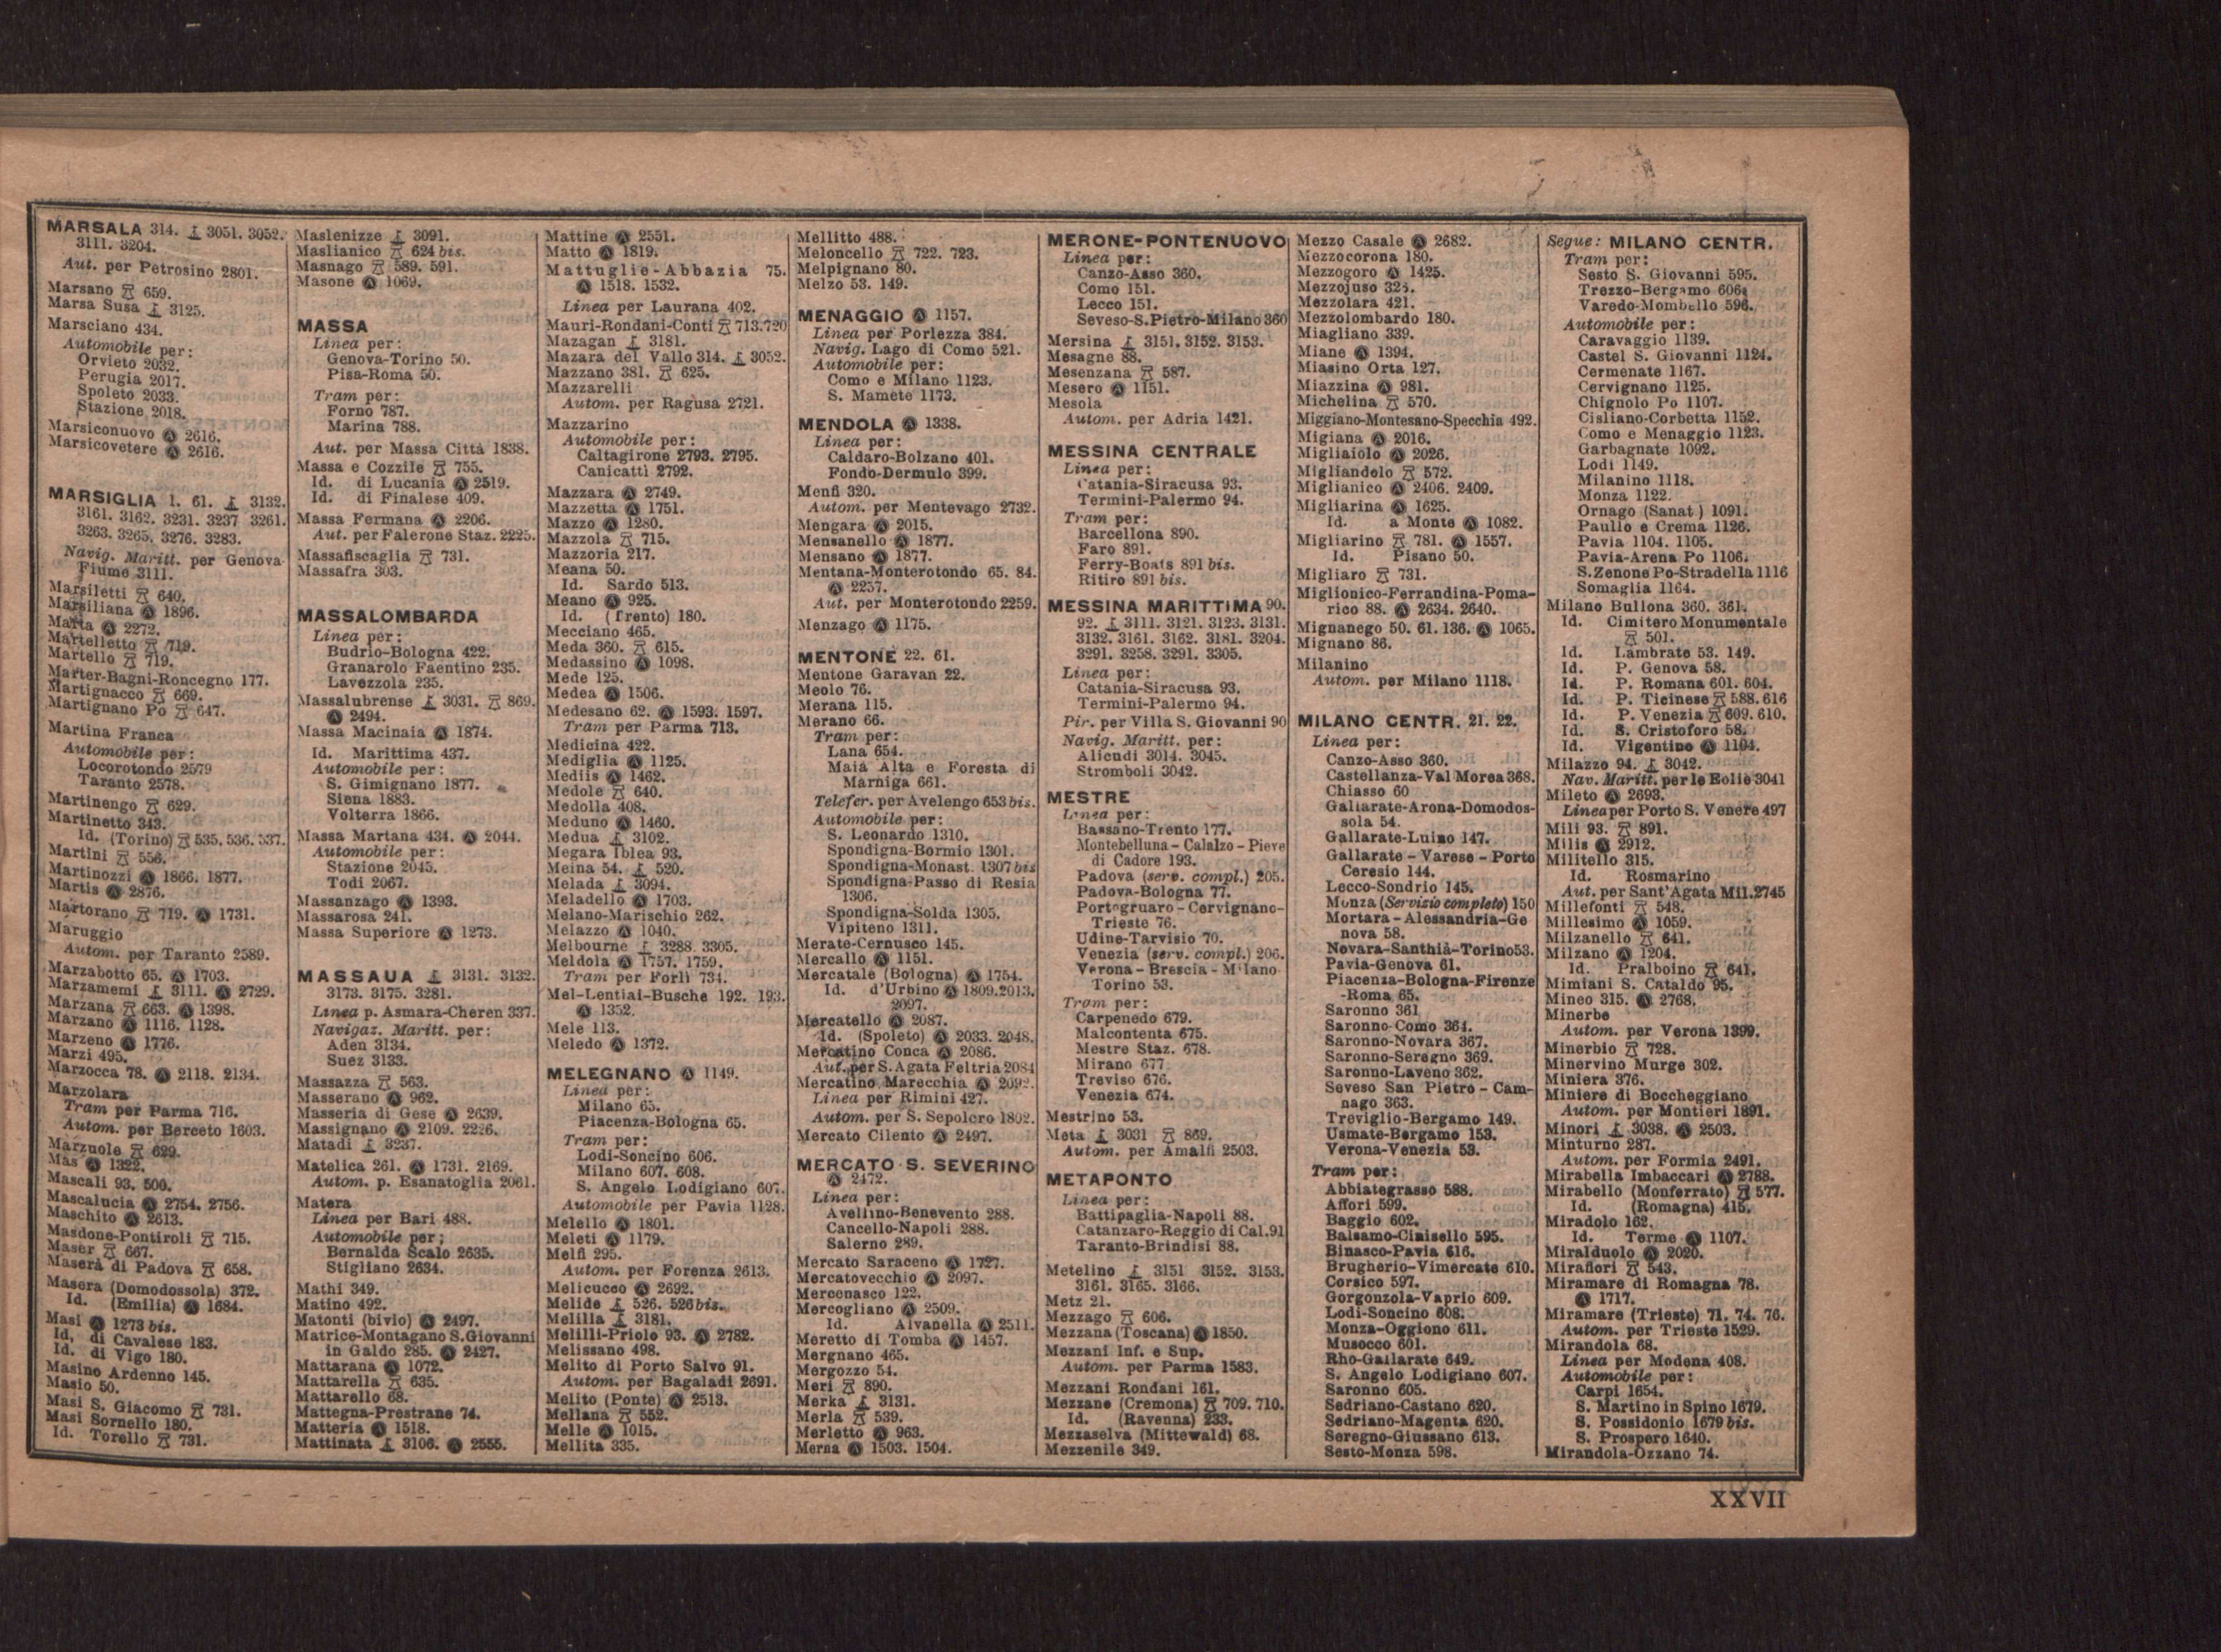 MARSALA 314. 3051. 3052.
3111. 3204.
Aut. per Petrosino 2801.
Marsano 659.
Marsa Susa 3125.
Marsciano 434.
Automobile per:
Orvieto 2032.
Perugia 2017.
Spoleto 2033.
Stazione 2018.
Marsiconuovo Ⓐ 2616.
Marsicovetere Ⓐ 2616.
MARSIGLIA 1. 61. 3132.
3161. 3162. 3231. 3237 3261.
3263. 3265. 3276. 3283.
Navig. Maritt. per Genova-
Fiume 3111.
Marsiletti 640.
Marsiliana Ⓐ 1896.
Marta Ⓐ 2272.
Martelletto 719.
Martello 719.
Marter-Bagni-Roncegno 177.
Martignacco 669.
Martignano Po 647.
Martina Franca
Automobile per:
Locorotondo 2579
Taranto 2578.
Martinengo 629.
Martinetto 343.
Id. (Torino) 535. 536. 537.
Martini 556.
Martinozzi Ⓐ 1866. 1877.
Martis Ⓐ 2876.
Martorano 719. Ⓐ 1731.
Maruggio
Autom. per Taranto 2589.
Marzabotto 65. Ⓐ 1703.
Marzamemi 3111. Ⓐ 2729.
Marzana 663. Ⓐ 1398.
Marzano Ⓐ 1116. 1128.
Marzeno Ⓐ 1776.
Marzi 495.
Marzocca 78. Ⓐ 2118. 2134.
Marzolara
Tram per Parma 716.
Autom. per Berceto 1603.
Marzuole 629.
Mas Ⓐ 1322.
Mascali 93. 500.
Mascalucia Ⓐ 2754. 2756.
Maschito Ⓐ 2613.
Masdone-Pontiroli 715.
Maser 667.
Maserà di Padova 658.
Masera (Domodossola) 372.
Id. (Emilia) Ⓐ 1684.
Masi Ⓐ 1273 bis.
Id. di Cavalese 183.
Id. di Vigo 180.
Masino Ardenno 145.
Masio 50.
Masi S. Giacomo 731.
Masi Sornello 180.
Id. Torello 731.
Maslenizze 3091.
Maslianico 624 bis.
Masnago 589. 591.
Masone Ⓐ 1069.
MASSA
Linea per:
Genova-Torino 50.
Pisa-Roma 50.
Tram per:
Forno 787.
Marina 788.
Aut. per Massa Città 1838.
Massa e Cozzile 755.
Id. di Lucania Ⓐ 2519.
Id. di Finalese 409.
Massa Fermana Ⓐ 2206.
Aut. per Falerone Staz. 2225.
Massafiscaglia 731.
Massafra 303.
MASSALOMBARDA
Linea per:
Budrio-Bologna 422.
Granarolo Faentino 235.
Lavezzola 235.
Massalubrense 3031. 869.
Ⓐ 2494.
Massa Macinaia Ⓐ 1874.
Id. Marittima 437.
Automobile per:
S. Gimignano 1877.
Siena 1883.
Volterra 1866.
Massa Martana 434. Ⓐ 2044.
Automobile per:
Stazione 2045.
Todi 2067.
Massanzago Ⓐ 1393.
Massarosa 241.
Massa Superiore Ⓐ 1273.
MASSAUA 3131. 3132.
3173. 3175. 3281.
Linea p. Asmara-Cheren 337.
Navigaz. Maritt. per:
Aden 3134.
Suez 3133.
Massazza 563.
Masserano Ⓐ 962.
Masseria di Gese Ⓐ 2639.
Massignano Ⓐ 2109. 2226.
Matadi 3237.
Matelica 261. Ⓐ 1731. 2169.
Autom. p. Esanatoglia 2061.
Matera
Linea per Bari 488.
Automobile per;
Bernalda Scalo 2635.
Stigliano 2634.
Mathi 349.
Matino 492.
Matonti (bivio) Ⓐ 2497.
Matrice-Montagano S.Giovanni
in Galdo 285. Ⓐ 2427.
Mattarana Ⓐ 1072.
Mattarella 635.
Mattarello 68.
Mattegna-Prestrane 74.
Matteria Ⓐ 1518.
Mattinata 3106. Ⓐ 2555.
Mattine Ⓐ 2551.
Matto Ⓐ 1819.
Mattuglie-Abbazia 75.
Ⓐ 1518. 1532.
Linea per Laurana 402.
Mauri-Rondani-Conti 713.720
Mazagan 3181.
Mazara del Vallo 314. 3052.
Mazzano 381. 625.
Mazzarelli
Autom. per Ragusa 2721.
Mazzarino
Automobile per:
Caltagirone 2793. 2795.
Canicattì 2792.
Mazzara Ⓐ 2749.
Mazzetta Ⓐ 1751.
Mazzo Ⓐ 1280.
Mazzola 715.
Mazzoria 217.
Meana 50.
Id. Sardo 513.
Meano Ⓐ 925.
Id. (Trento) 180.
Mecciano 465.
Meda 360. 615.
Medassino Ⓐ 1098.
Mede 125.
Medea Ⓐ 1506.
Medesano 62. Ⓐ 1593. 1597.
Tram per Parma 713.
Medicina 422.
Mediglia Ⓐ 1125.
Mediis Ⓐ 1462.
Medole 640.
Medolla 408.
Meduno Ⓐ 1460.
Medua 3102.
Megara Iblea 93.
Meina 54. 520.
Melada 3094.
Meladello Ⓐ 1703.
Melano-Marischio 262.
Melazzo Ⓐ 1040.
Melbourne 3288. 3305.
Meldola Ⓐ 1757. 1759.
Tram per Forlì 734.
Mel-Lentiai-Busche 192. 193.
Ⓐ 1352.
Mele 113.
Meledo Ⓐ 1372.
MELEGNANO Ⓐ 1149.
Linea per:
Milano 65.
Piacenza-Bologna 65.
Tram per:
Lodi-Soncino 606.
Milano 607. 608.
S. Angelo Lodigiano 607.
Automobile per Pavia 1128.
Melello Ⓐ 1801.
Meleti Ⓐ 1179.
Melfi 295.
Autom. per Forenza 2613.
Melicucco Ⓐ 2692.
Melide 526. 526 bis.
Melilla 3181.
Melilli-Priolo 93. Ⓐ 2782.
Melissano 498.
Melito di Porto Salvo 91.
Autom. per Bagaladi 2691.
Melito (Ponte) Ⓐ 2513.
Mellana 552.
Melle Ⓐ 1015.
Mellita 335.
Mellitto 488.
Meloncello 722. 723.
Melpignano 80.
Melzo 53. 149.
MENAGGIO Ⓐ 1157.
Linea per Porlezza 384.
Navig. Lago di Como 521.
Automobile per:
Como e Milano 1123.
S. Mamete 1173.
MENDOLA Ⓐ 1338.
Linea per:
Caldaro-Bolzano 401.
Fondo-Dermulo 399.
Menfi 320.
Autom. per Mentevago 2732.
Mengara Ⓐ 2015.
Mensanello Ⓐ 1877.
Mensano Ⓐ 1877.
Mentana-Monterotondo 65. 84.
Ⓐ 2257.
Aut. per Monterotondo 2259.
Menzago Ⓐ 1175.
MENTONE 22. 61.
Mentone Garavan 22.
Meolo 76.
Merana 115.
Merano 66.
Tram per:
Lana 654.
Maia Alta e Foresta di
Marniga 661.
Telefer. per Avelengo 653 bis.
Automobile per:
S. Leonardo 1310.
Spondigna-Bormio 1301.
Spondigna-Monast. 1307 bis
Spondigna-Passo di Resia
1306.
Spondigna-Solda 1305.
Vipiteno 1311.
Merate-Cernusco 145.
Mercallo Ⓐ 1151.
Mercatale (Bologna) Ⓐ 1754.
Id. d'Urbino Ⓐ 1809.2013.
2097.
Mercatello Ⓐ 2087.
Id. (Spoleto) Ⓐ 2033. 2048.
Mercatino Conca Ⓐ 2086.
Aut. per S. Agata Feltria 2084
Mercatino Marecchia Ⓐ 2092.
Linea per Rimini 427.
Autom. per S. Sepolcro 1802.
Mercato Cilento Ⓐ 2497.
MERCATO S. SEVERINO
Ⓐ 2472.
Linea per:
Avellino-Benevento 288.
Cancello-Napoli 288.
Salerno 289.
Mercato Saraceno Ⓐ 1727.
Mercatovecchio Ⓐ 2097.
Mercenasco 122.
Mercogliano Ⓐ 2509.
Id. Alvanella Ⓐ 2511.
Meretto di Tomba Ⓐ 1457.
Mergnano 465.
Mergozzo 54.
Meri 890.
Merka 3131.
Merla 539.
Merletto Ⓐ 963.
Merna Ⓐ 1503. 1504.
MERONE-PONTENUOVO
Linea per:
Canzo-Asso 360.
Como 151.
Lecco 151.
Seveso-S.Pietro-Milano 360
Mersina 3151. 3152. 3153.
Mesagne 88.
Mesenzana 587.
Mesero Ⓐ 1151.
Mesola
Autom. per Adria 1421.
MESSINA CENTRALE
Linea per:
Catania-Siracusa 93.
Termini-Palermo 94.
Tram per:
Barcellona 890.
Faro 891.
Ferry-Boats 891 bis.
Ritiro 891 bis.
MESSINA MARITTIMA 90.
92. 3111. 3121. 3123. 3131.
3132. 3161. 3162. 3181. 3204.
3291. 3258. 3291. 3305.
Linea per:
Catania-Siracusa 93.
Termini-Palermo 94.
Pir. per Villa S. Giovanni 90
Navig. Maritt. per:
Alicudi 3014. 3045.
Stromboli 3042.
MESTRE
Linea per:
Bassano-Trento 177.
Montebelluna-Calalzo-Pieve
di Cadore 193.
Padova (serv. compl.) 205.
Padova-Bologna 77.
Portogruaro-Cervignano-
Trieste 76.
Udine-Tarvisio 70.
Venezia (serv. compl.) 206.
Verona-Brescia-Milano
Torino 53.
Tram per:
Carpenedo 679.
Malcontenta 675.
Mestre Staz. 678.
Mirano 677
Treviso 676.
Venezia 674.
Mestrino 53.
Meta 3031 869.
Autom. per Amalfi 2503.
METAPONTO
Linea per:
Battipaglia-Napoli 88.
Catanzaro-Reggio di Cal.91
Taranto-Brindisi 88.
Metelino 3151 3152. 3153.
3161. 3165. 3166.
Metz 21.
Mezzago 606.
Mezzana (Toscana) Ⓐ 1850.
Mezzani Inf. e Sup.
Autom. per Parma 1583.
Mezzani Rondani 161.
Mezzane (Cremona) 709. 710.
Id. (Ravenna) 233.
Mezzaselva (Mittewald) 68.
Mezzenile 349.
Mezzo Casale Ⓐ 2682.
Mezzocorona 180.
Mezzogoro Ⓐ 1425.
Mezzojuso 323.
Mezzolara 421.
Mezzolombardo 180.
Miagliano 339.
Miane Ⓐ 1394.
Miasino Orta 127.
Miazzina Ⓐ 981.
Michelina 570.
Miggiano-Montesano-Specchia 492.
Migiana Ⓐ 2016.
Migliaiolo Ⓐ 2026.
Migliandolo 572.
Miglianico Ⓐ 2406. 2409.
Migliarina Ⓐ 1625.
Id. a Monte Ⓐ 1082.
Migliarino 781. Ⓐ 1557.
Id. Pisano 50.
Migliaro 731.
Miglionico-Ferrandina-Poma-
rico 88. Ⓐ 2634. 2640.
Mignanego 50. 61. 136. Ⓐ 1065.
Mignano 86.
Milanino
Autom. per Milano 1118.
MILANO CENTR. 21. 22.
Linea per:
Canzo-Asso 360.
Castellanza-Val Morea 368.
Chiasso 60
Gallarate-Arona-Domodos-
sola 54.
Gallarate-Luino 147.
Gallarate-Varese-Porto
Ceresio 144.
Lecco-Sondrio 145.
Monza (Servizio completo) 150
Mortara-Alessandria-Ge
nova 58.
Novara-Santhià-Torino53.
Pavia-Genova 61.
Piacenza-Bologna-Firenze
-Roma 65.
Saronno 361
Saronno-Como 364.
Saronno-Novara 367.
Saronno-Seregno 369.
Saronno-Laveno 362.
Seveso San Pietro-Cam-
nago 363.
Treviglio-Bergamo 149.
Usmate-Bergamo 153.
Verona-Venezia 53.
Tram per:
Abbiategrasso 588.
Affori 599.
Baggio 602.
Balsamo-Cinisello 595.
Binasco-Pavia 616.
Brugherio-Vimercate 610.
Corsico 597.
Gorgonzola-Vaprio 609.
Lodi-Soncino 608.
Monza-Oggiono 611.
Musocco 601.
Rho-Gallarate 649.
S. Angelo Lodigiano 607.
Saronno 605.
Sedriano-Castano 620.
Sedriano-Magenta 620.
Seregno-Giussano 613.
Sesto-Monza 598.
Segue: MILANO CENTR.
Tram per:
Sesto S. Giovanni 595.
Trezzo-Bergamo 606.
Varedo-Mombello 596.
Automobile per:
Caravaggio 1139.
Castel S. Giovanni 1124.
Cermenate 1167.
Cervignano 1125.
Chignolo Po 1107.
Cisliano-Corbetta 1152.
Como e Menaggio 1123.
Garbagnate 1092.
Lodi 1149.
Milanino 1118.
Monza 1122.
Ornago (Sanat) 1091.
Paullo e Crema 1126.
Pavia 1104. 1105.
Pavia-Arena Po 1106.
S.Zenone Po-Stradella 1116
Somaglia 1164.
Milano Bullona 360. 361.
Id. Cimitero Monumentale
501.
Id. Lambrate 53. 149.
Id. P. Genova 58.
Id. P. Romana 601. 604.
Id. P. Ticinese 588.616
Id. P. Venezia 609. 610.
Id. S. Cristoforo 58.
Id. Vigentino Ⓐ 1104.
Milazzo 94. 3042.
Nav. Maritt. per le Eolie 3041
Mileto Ⓐ 2693.
Linea per Porto S. Venere 497
Mili 93. 891.
Milis Ⓐ 2912.
Militello 315.
Id. Rosmarino
Aut. per Sant'Agata Mil.2745
Millefonti 548.
Millesimo Ⓐ 1059.
Milzanello 641.
Milzano Ⓐ 1204.
Id. Pralboino 641.
Mimiani S. Cataldo 95.
Mineo 315. Ⓐ 2768.
Minerbe
Autom. per Verona 1399.
Minerbio 728.
Minervino Murge 302.
Miniera 376.
Miniere di Boccheggiano
Autom. per Montieri 1891.
Minori 3038. Ⓐ 2503.
Minturno 287.
Autom. per Formia 2491.
Mirabella Imbaccari Ⓐ 2788.
Mirabello (Monferrato) 577.
Id. (Romagna) 415.
Miradolo 162.
Id. Terme Ⓐ 1107.
Miralduolo Ⓐ 2020.
Mirafiori 543.
Miramare di Romagna 78.
Ⓐ 1717.
Miramare (Trieste) 71. 74. 76.
Autom. per Trieste 1529.
Mirandola 68.
Linea per Modena 408.
Automobile per:
Carpi 1654.
S. Martino in Spino 1679.
S. Possidonio 1679 bis.
S. Prospero 1640.
Mirandola-Ozzano 74.
XXVII